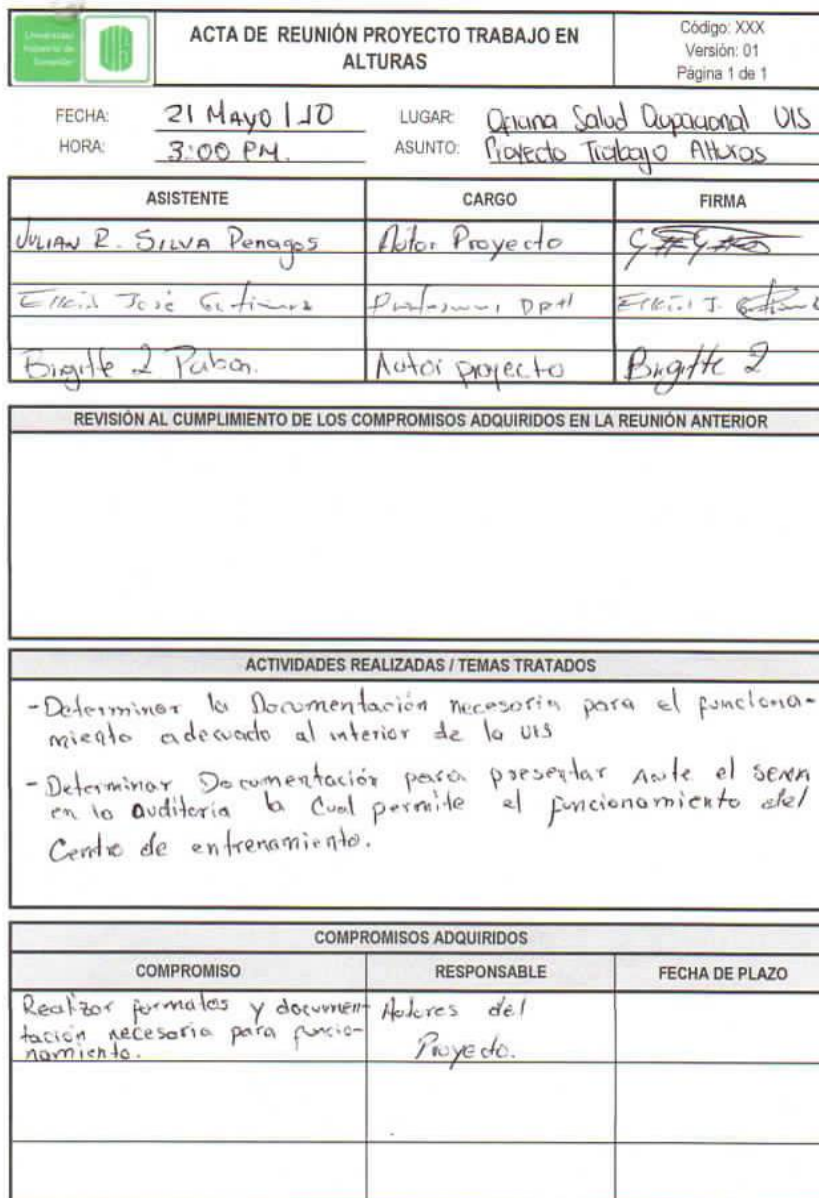 Universidad
Industrial de
Santander
ACTA DE REUNIÓN PROYECTO TRABAJO EN
ALTURAS
Código: XXX
Versión: 01
Página 1 de 1
FECHA: 21 MAYO / 10 LUGAR: Oficina Salud Ocupacional UIS
HORA: 3:00 PM. ASUNTO: Proyecto Trabajo Alturas
ASISTENTE CARGO FIRMA
JULIAN R. SILVA Penagos Autor Proyecto
Elkin José Gutierrez DRH Elkin J.
Brigitte 2 Pabón. Autor proyecto Brigitte 2
REVISIÓN AL CUMPLIMIENTO DE LOS COMPROMISOS ADQUIRIDOS EN LA REUNIÓN ANTERIOR
ACTIVIDADES REALIZADAS / TEMAS TRATADOS
- Determinar la Documentación necesaria para el funciona-
miento adecuado al interior de la UIS
- Determinar Documentación para presentar Ante el SENA
en la auditoria la Cual permite el funcionamiento del
Centro de entrenamiento.
COMPROMISOS ADQUIRIDOS
COMPROMISO RESPONSABLE FECHA DE PLAZO
Realizar formatos y documen- Autores del
tación necesaria para funcio- Proyecto.
namiento.